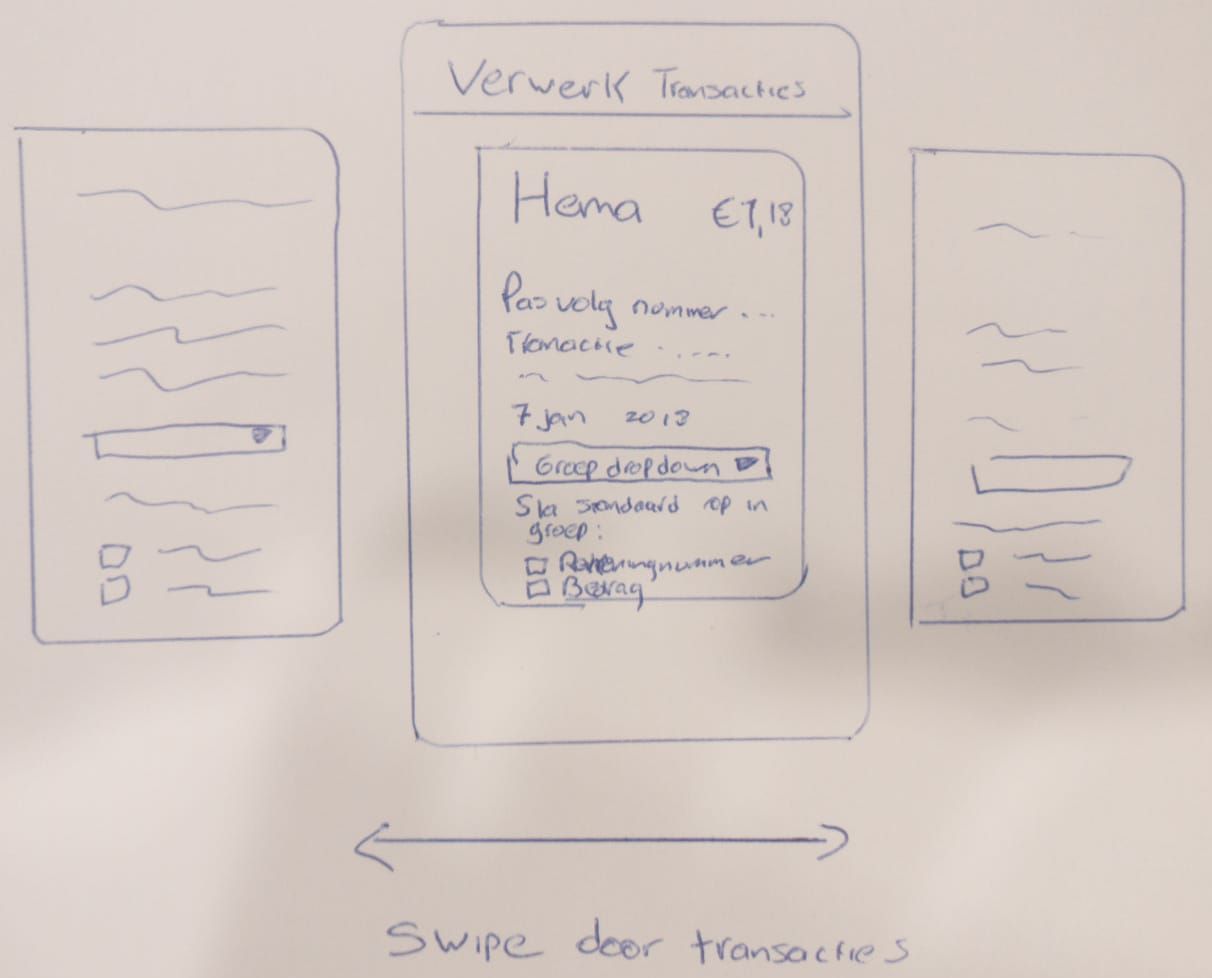 Verwerk Transacties
Hema €7,18
Pas volg nummer ...
Transactie .....
7 jan 2018
Groep dropdown
Sla standaard op in
groep:
Rekeningnummer
Bedrag
Swipe door transacties